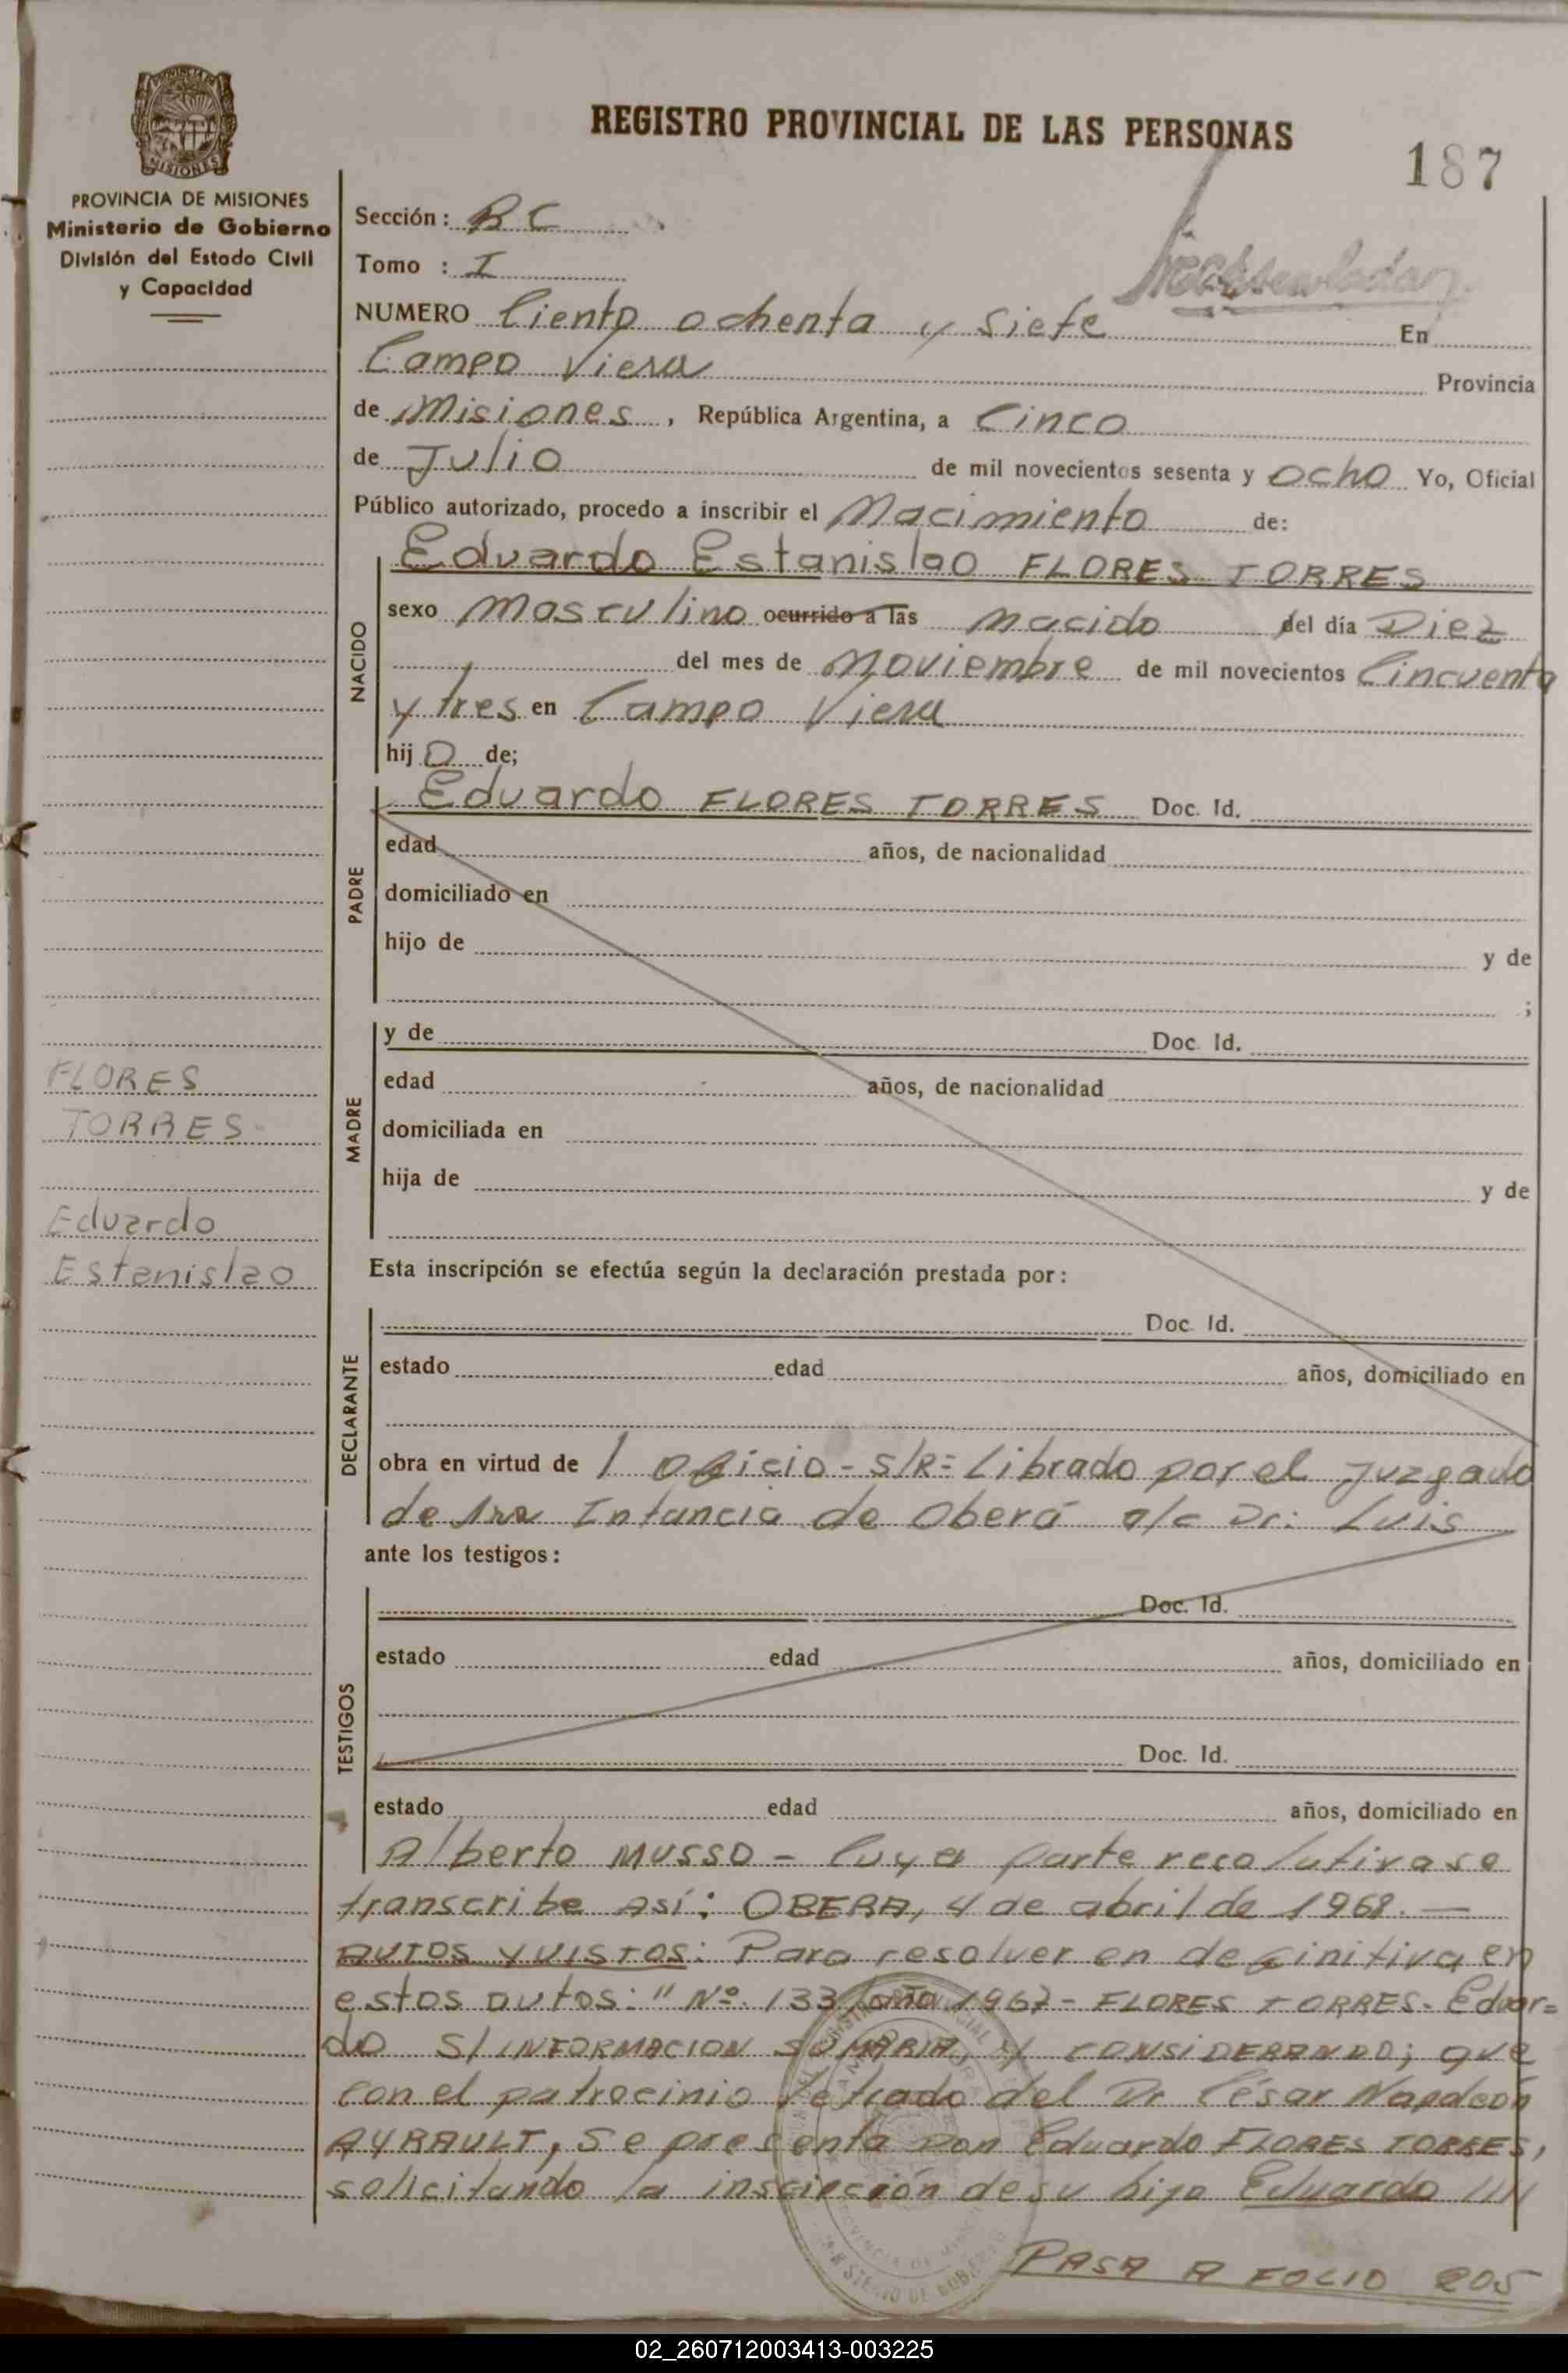 REGISTRO PROVINCIAL DE LAS PERSONAS
187
PROVINCIA DE MISIONES
Ministerio de Gobierno
División del Estado Civil
y Capacidad
Sección: RC
Tomo : I
NUMERO Ciento ochenta y siete En
Campo Viera Provincia
de Misiones, República Argentina, a Cinco
de Julio de mil novecientos sesenta y ocho Yo, Oficial
Público autorizado, procedo a inscribir el Nacimiento de:
NACIDO
Eduardo Estanislao FLORES TORRES
sexo Masculino ocurrido a las Nacido del día Diez
del mes de Noviembre de mil novecientos Cincuenta
y tres en Campo Viera
hijo de;
PADRE
Eduardo FLORES TORRES Doc. Id.
edad años, de nacionalidad
domiciliado en
hijo de y de
;
MADRE
y de Doc. Id.
edad años, de nacionalidad
domiciliada en
hija de y de
FLORES
TORRES
Eduardo
Estanislao
Esta inscripción se efectúa según la declaración prestada por:
DECLARANTE
Doc. Id.
estado edad años, domiciliado en
obra en virtud de 1 oficio - S/R= Librado por el Juzgado
de 1ra Intancia de Oberá a/c Dr: Luis
ante los testigos:
TESTIGOS
Doc. Id.
estado edad años, domiciliado en
Doc. Id.
estado edad años, domiciliado en
Alberto MUSSO - Cuya parte resolutiva se
transcribe Así: OBERA, 4 de abril de 1968. —
AUTOS Y VISTOS: Para resolver en definitiva en
estos autos: "Nº. 133/año 1967- FLORES TORRES- Eduar=
do S/ INFORMACION SUMARIA, y CONSIDERANDO; que
con el patrocinio letrado del Dr César Napoleón
AYRAULT, Se presenta Don Eduardo FLORES TORRES,
solicitando la inscripción de su hijo Eduardo ////
PASA A FOLIO 205
02_260712003413-003225